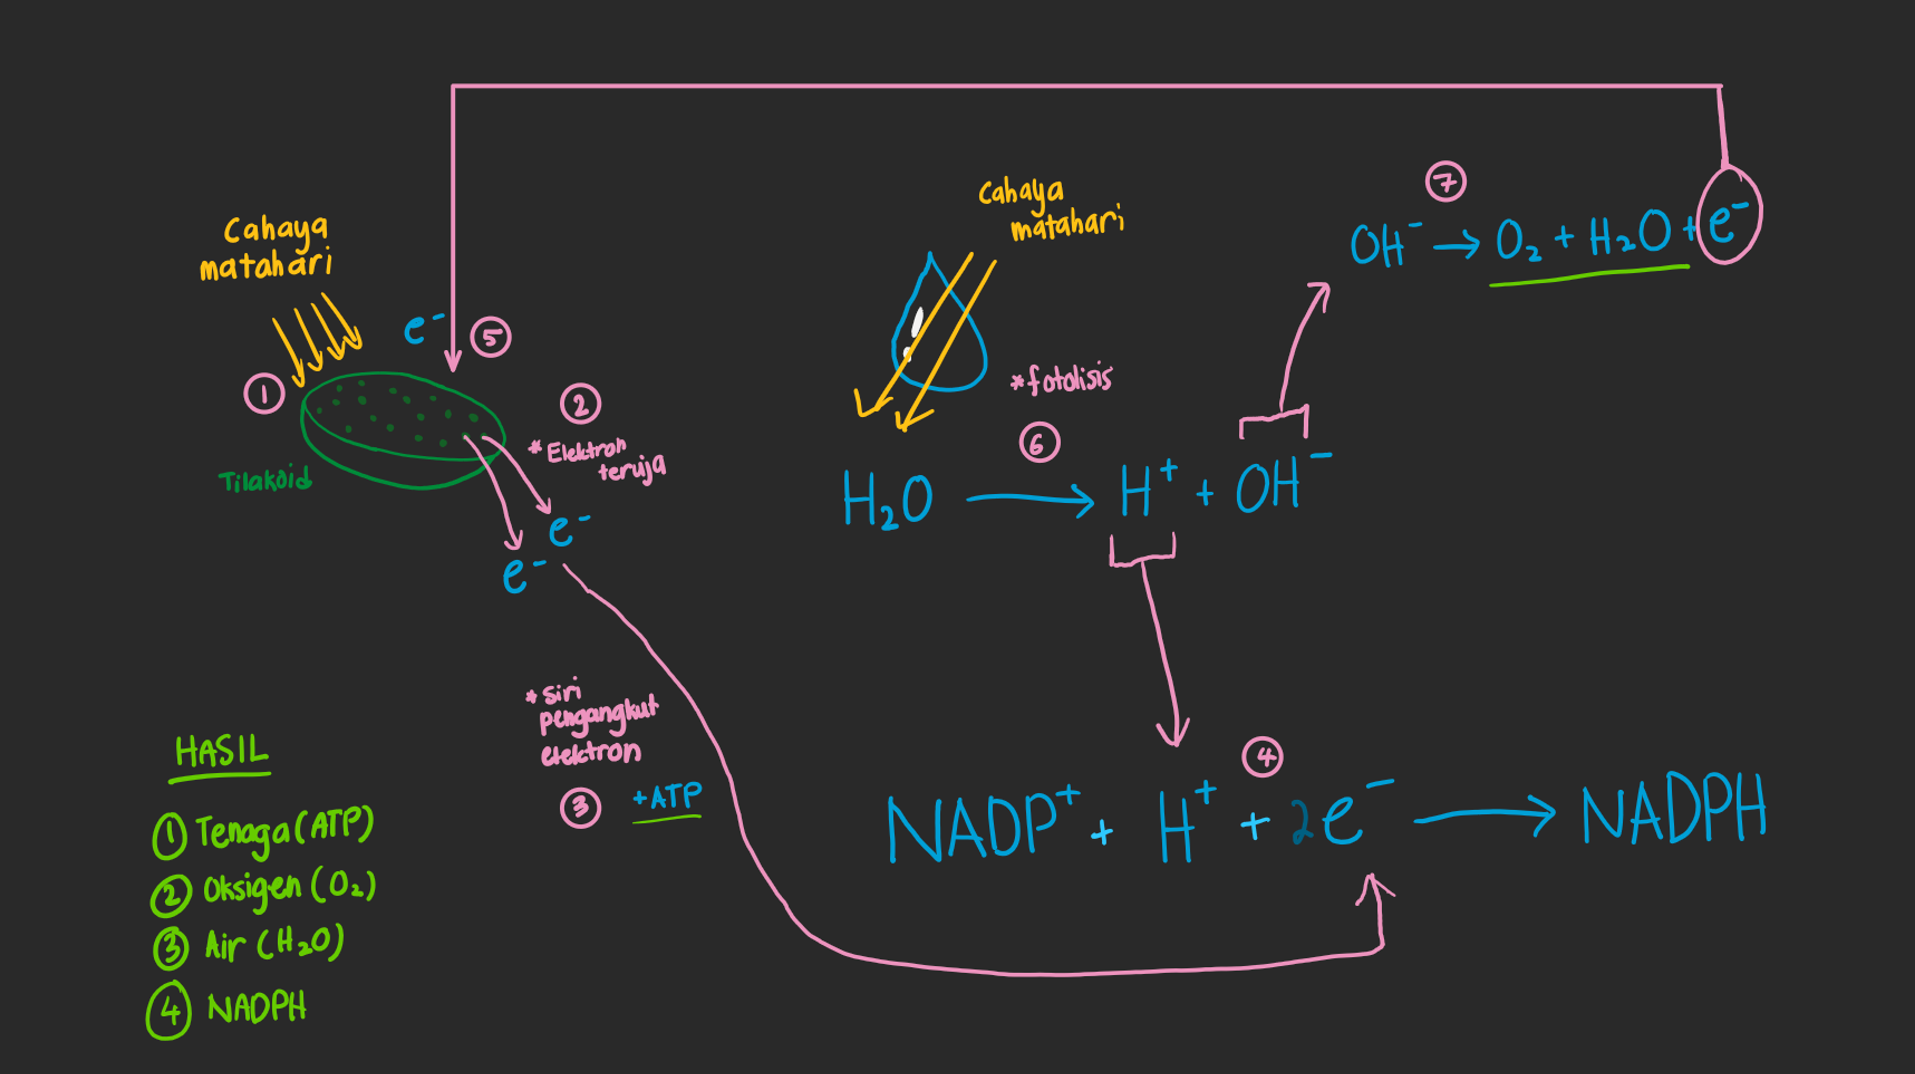 Cahaya
matahari
①
Tilakoid
e⁻
⑤
②
*Elektron
teruja
e⁻
e⁻
*siri
pengangkut
elektron
③ +ATP
Cahaya
matahari
*fotolisis
⑥
H₂O → H⁺ + OH⁻
⑦
OH⁻ → O₂ + H₂O + e⁻
④
NADP⁺ + H⁺ + 2e⁻ → NADPH
HASIL
① Tenaga (ATP)
② Oksigen (O₂)
③ Air (H₂O)
④ NADPH